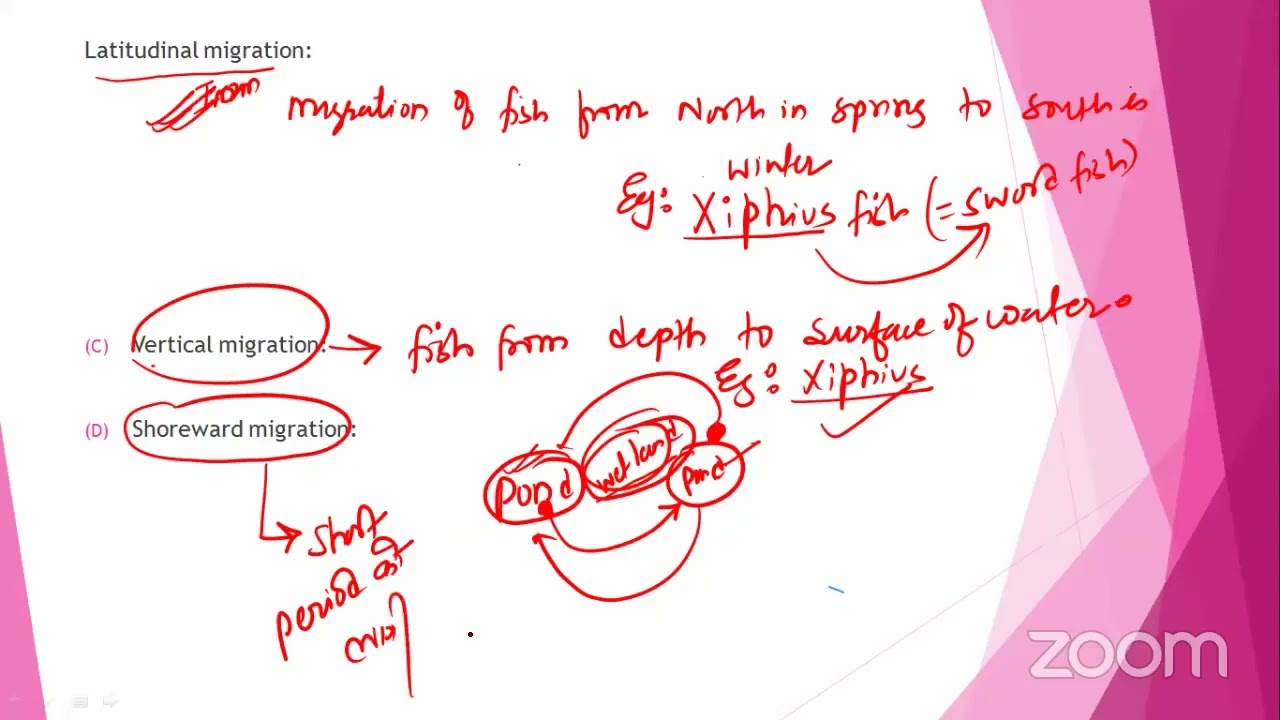 Latitudinal migration:
From
Migration of fish from North in spring to south is
winter
Eg: Xiphius fish (= sword fish)
(C) Vertical migration: → fish from depth to surface of water.
Eg: Xiphius
(D) Shoreward migration:
Pond wetland Pond
short
period of
zoom